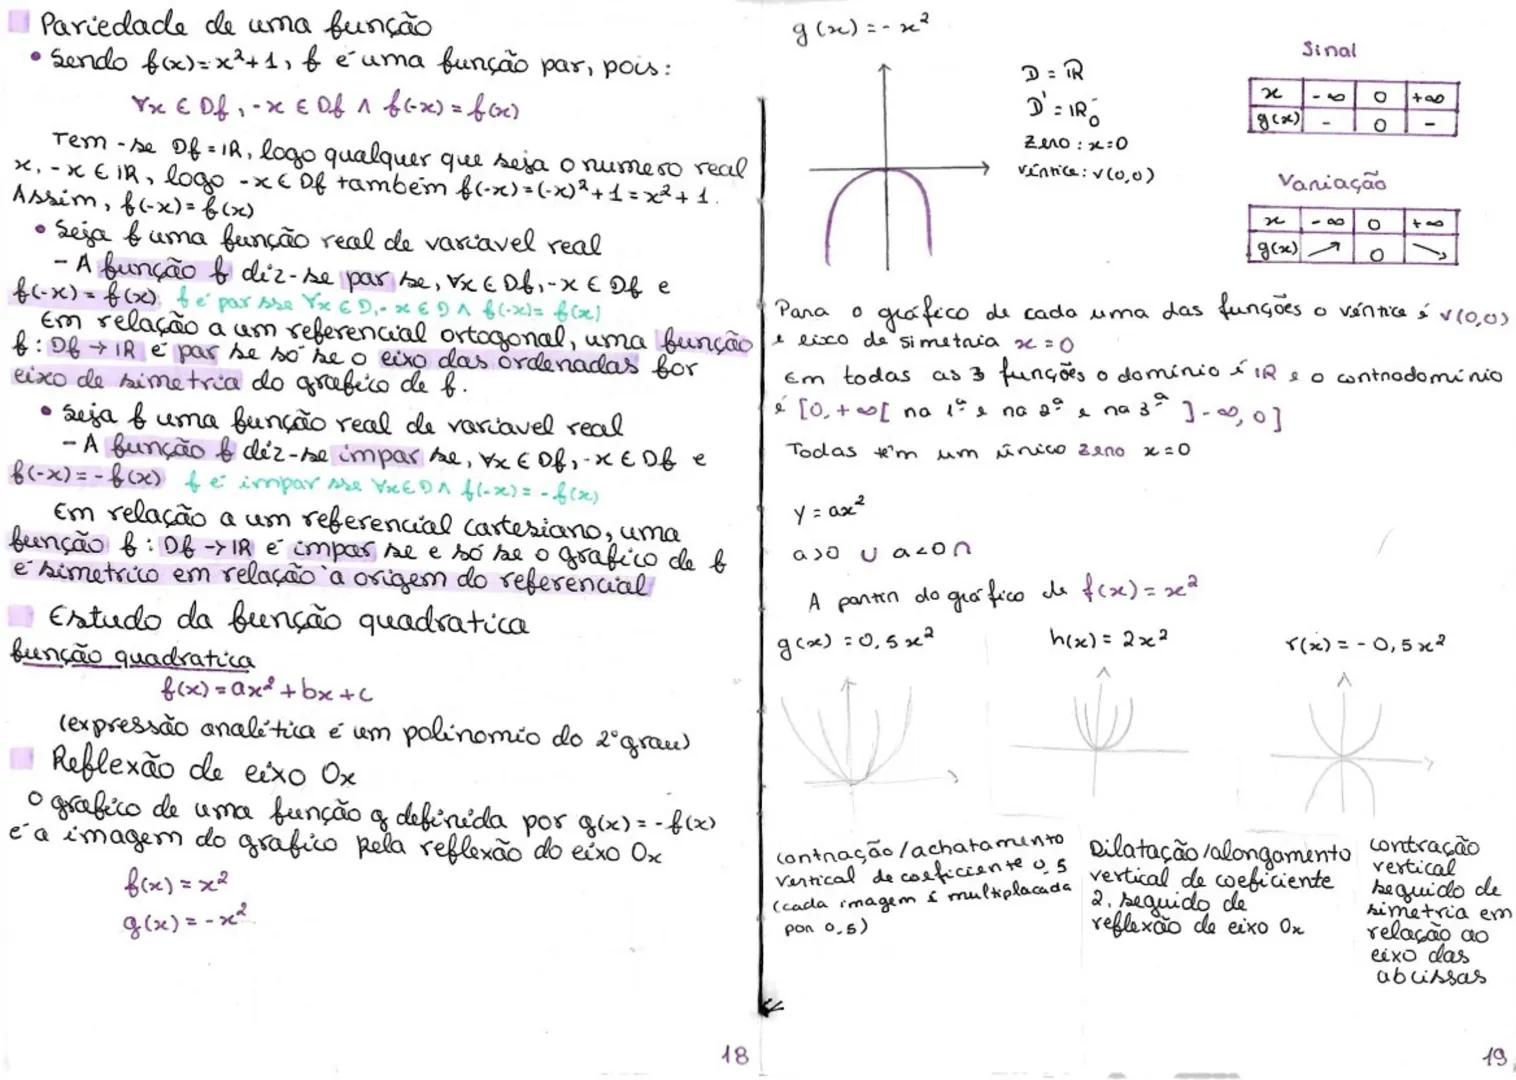 Pariedade de uma função
• Sendo f(x)=x²+1, f é uma função par, pois:
∀x ∈ Df, -x ∈ Df ∧ f(-x) = f(x)
Tem-se Df = IR, logo qualquer que seja o numero real
x, -x ∈ IR, logo -x ∈ Df também f(-x) = (-x)²+1 = x²+1.
Assim, f(-x) = f(x)
• Seja f uma função real de variavel real
- A função f diz-se par se, ∀x ∈ Df, -x ∈ Df e
f(-x) = f(x) f é par sse ∀x ∈ D, -x ∈ D ∧ f(-x) = f(x)
Em relação a um referencial ortogonal, uma função
f: Df → IR é par se só se o eixo das ordenadas for
eixo de simetria do grafico de f.
• Seja f uma função real de variavel real
- A função f diz-se impar se, ∀x ∈ Df, -x ∈ Df e
f(-x) = -f(x) f é impar sse ∀x ∈ D ∧ f(-x) = -f(x)
Em relação a um referencial cartesiano, uma
função f: Df → IR é impar se e só se o grafico de f
é simetrico em relação à origem do referencial
Estudo da função quadratica
função quadratica
f(x) = ax² + bx + c
(expressão analítica é um polinomio do 2º grau)
Reflexão de eixo Ox
O grafico de uma função g definida por g(x) = -f(x)
é a imagem do grafico pela reflexão do eixo Ox
f(x) = x²
g(x) = -x²
18
g(x) = -x²
D = IR
D' = IR₀⁻
Zero: x=0
Vértice: V(0,0)
Sinal
x -∞ 0 +∞
g(x) - 0 -
Variação
x -∞ 0 +∞
g(x) ↗ 0 ↘
Para o gráfico de cada uma das funções o vértice é V(0,0)
e eixo de simetria x = 0
Em todas as 3 funções o domínio é IR e o contradomínio
é [0,+∞[ na 1ª e na 2ª e na 3ª ]-∞,0]
Todas têm um único zero x=0
y = ax²
a>0 ∪ a<0 ∩
A partir do gráfico de f(x) = x²
g(x) = 0,5x²
h(x) = 2x²
r(x) = -0,5x²
contração/achatamento
vertical de coeficiente 0,5
(cada imagem é multiplacada
por 0,5)
Dilatação/alongamento
vertical de coeficiente
2, seguido de
reflexão de eixo Ox
contração
vertical
seguido de
simetria em
relação ao
eixo das
abcissas
19